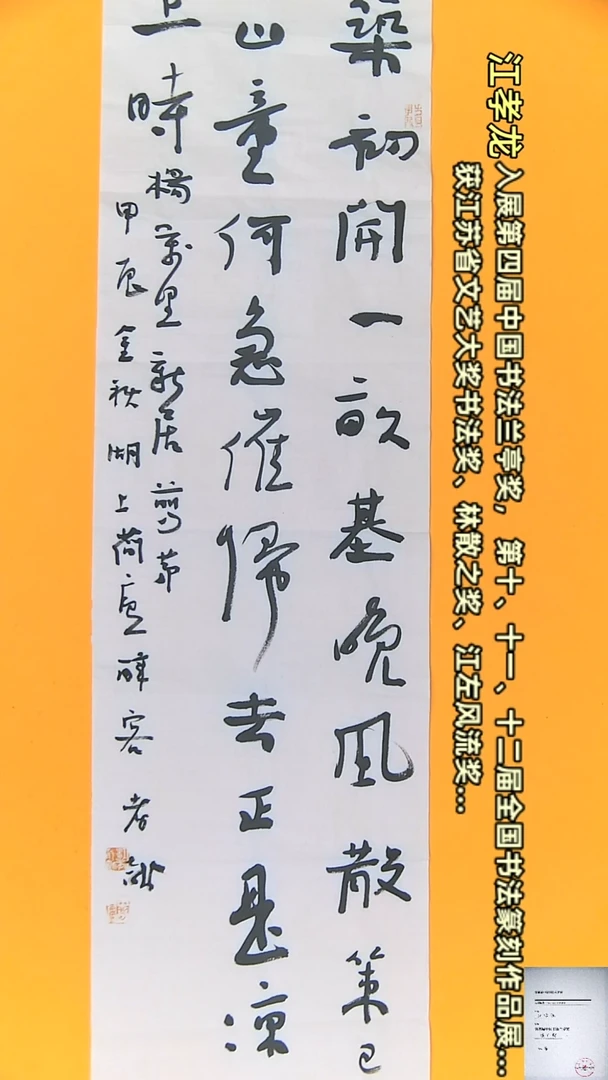 江孝龙 入展第四届中国书法兰亭奖，第十、十一、十二届全国书法篆刻作品展...
获江苏省文艺大奖书法奖、林散之奖、江左风流奖...
築初開一畝基晚風散策已
山童何急催歸去正是凉
上時
楊萬里新居剪茅
甲辰金秋湖上廬醉客孝龍